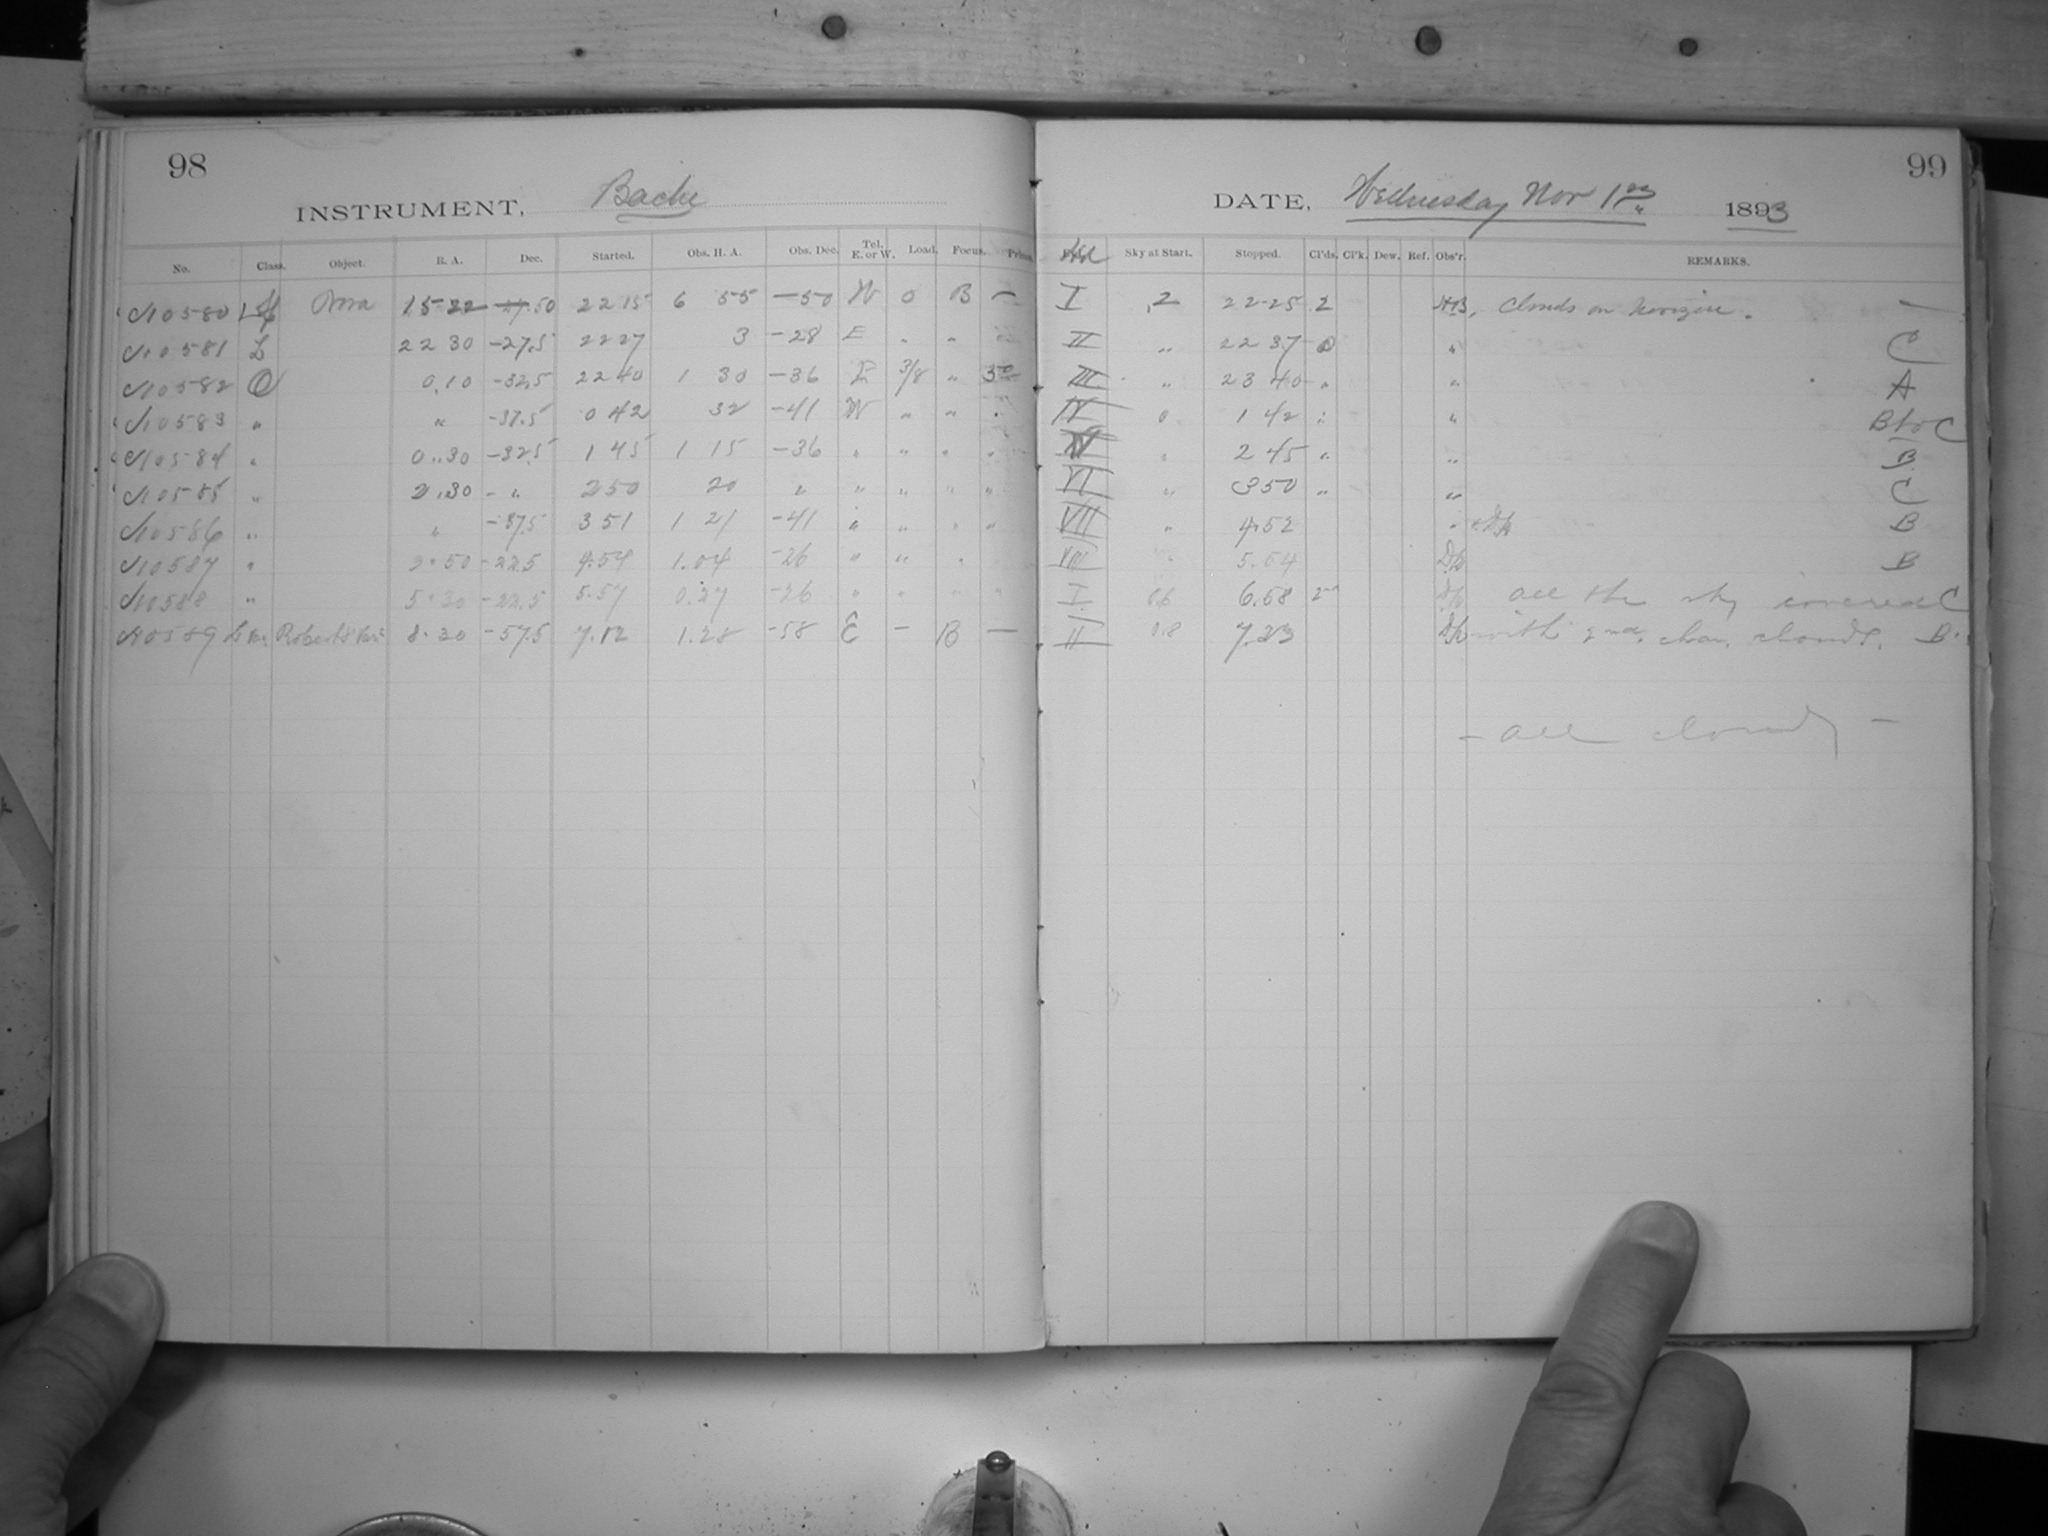 98
INSTRUMENT, Bache
No. Class. Object. R. A. Dec. Started. Obs. H. A. Obs. Dec. Tel. E. or W. Load. Focus. Prism.
10580 Nova 15 22 50 22 15 6 55 -50 W 0 B —
10581 L 22 30 -27.5 22 27 3 -28 E " "
10582 0.10 -32.5 22 40 1 30 -36 E 3/8 "
10583 " " -37.5 0 42 32 -41 W " " "
10584 " 0.30 -32.5 1 45 1 15 -36 " " " "
10585 " 2.30 - " 2 50 20 " " " " "
10586 " " -37.5 3 51 1 21 -41 " " " "
10587 " 50 -22.5 4.54 1.04 -26 " " "
10588 " 5.30 -22.5 5.57 0.27 -26 " " " "
10589 Roberts' 8.30 -57.5 7.12 1.28 -58 E — B —
99
DATE, Wednesday Nov 1 1893
Sky at Start. Stopped. Cl'ds. Cl'k. Dew. Ref. Obs'r. REMARKS.
I 2 22 25 2 Clouds on horizon. —
II " 22 37 0 " C
III " 23 40 " " A
IV 0 1 42 " " B to C
" 2 45 " " B
VI " 3 50 " " C
VII " 4.52 " B
VIII 5.54 B
I 6.58 all the sky covered C
II 0.8 7.23 with clouds. B
- all cloudy -